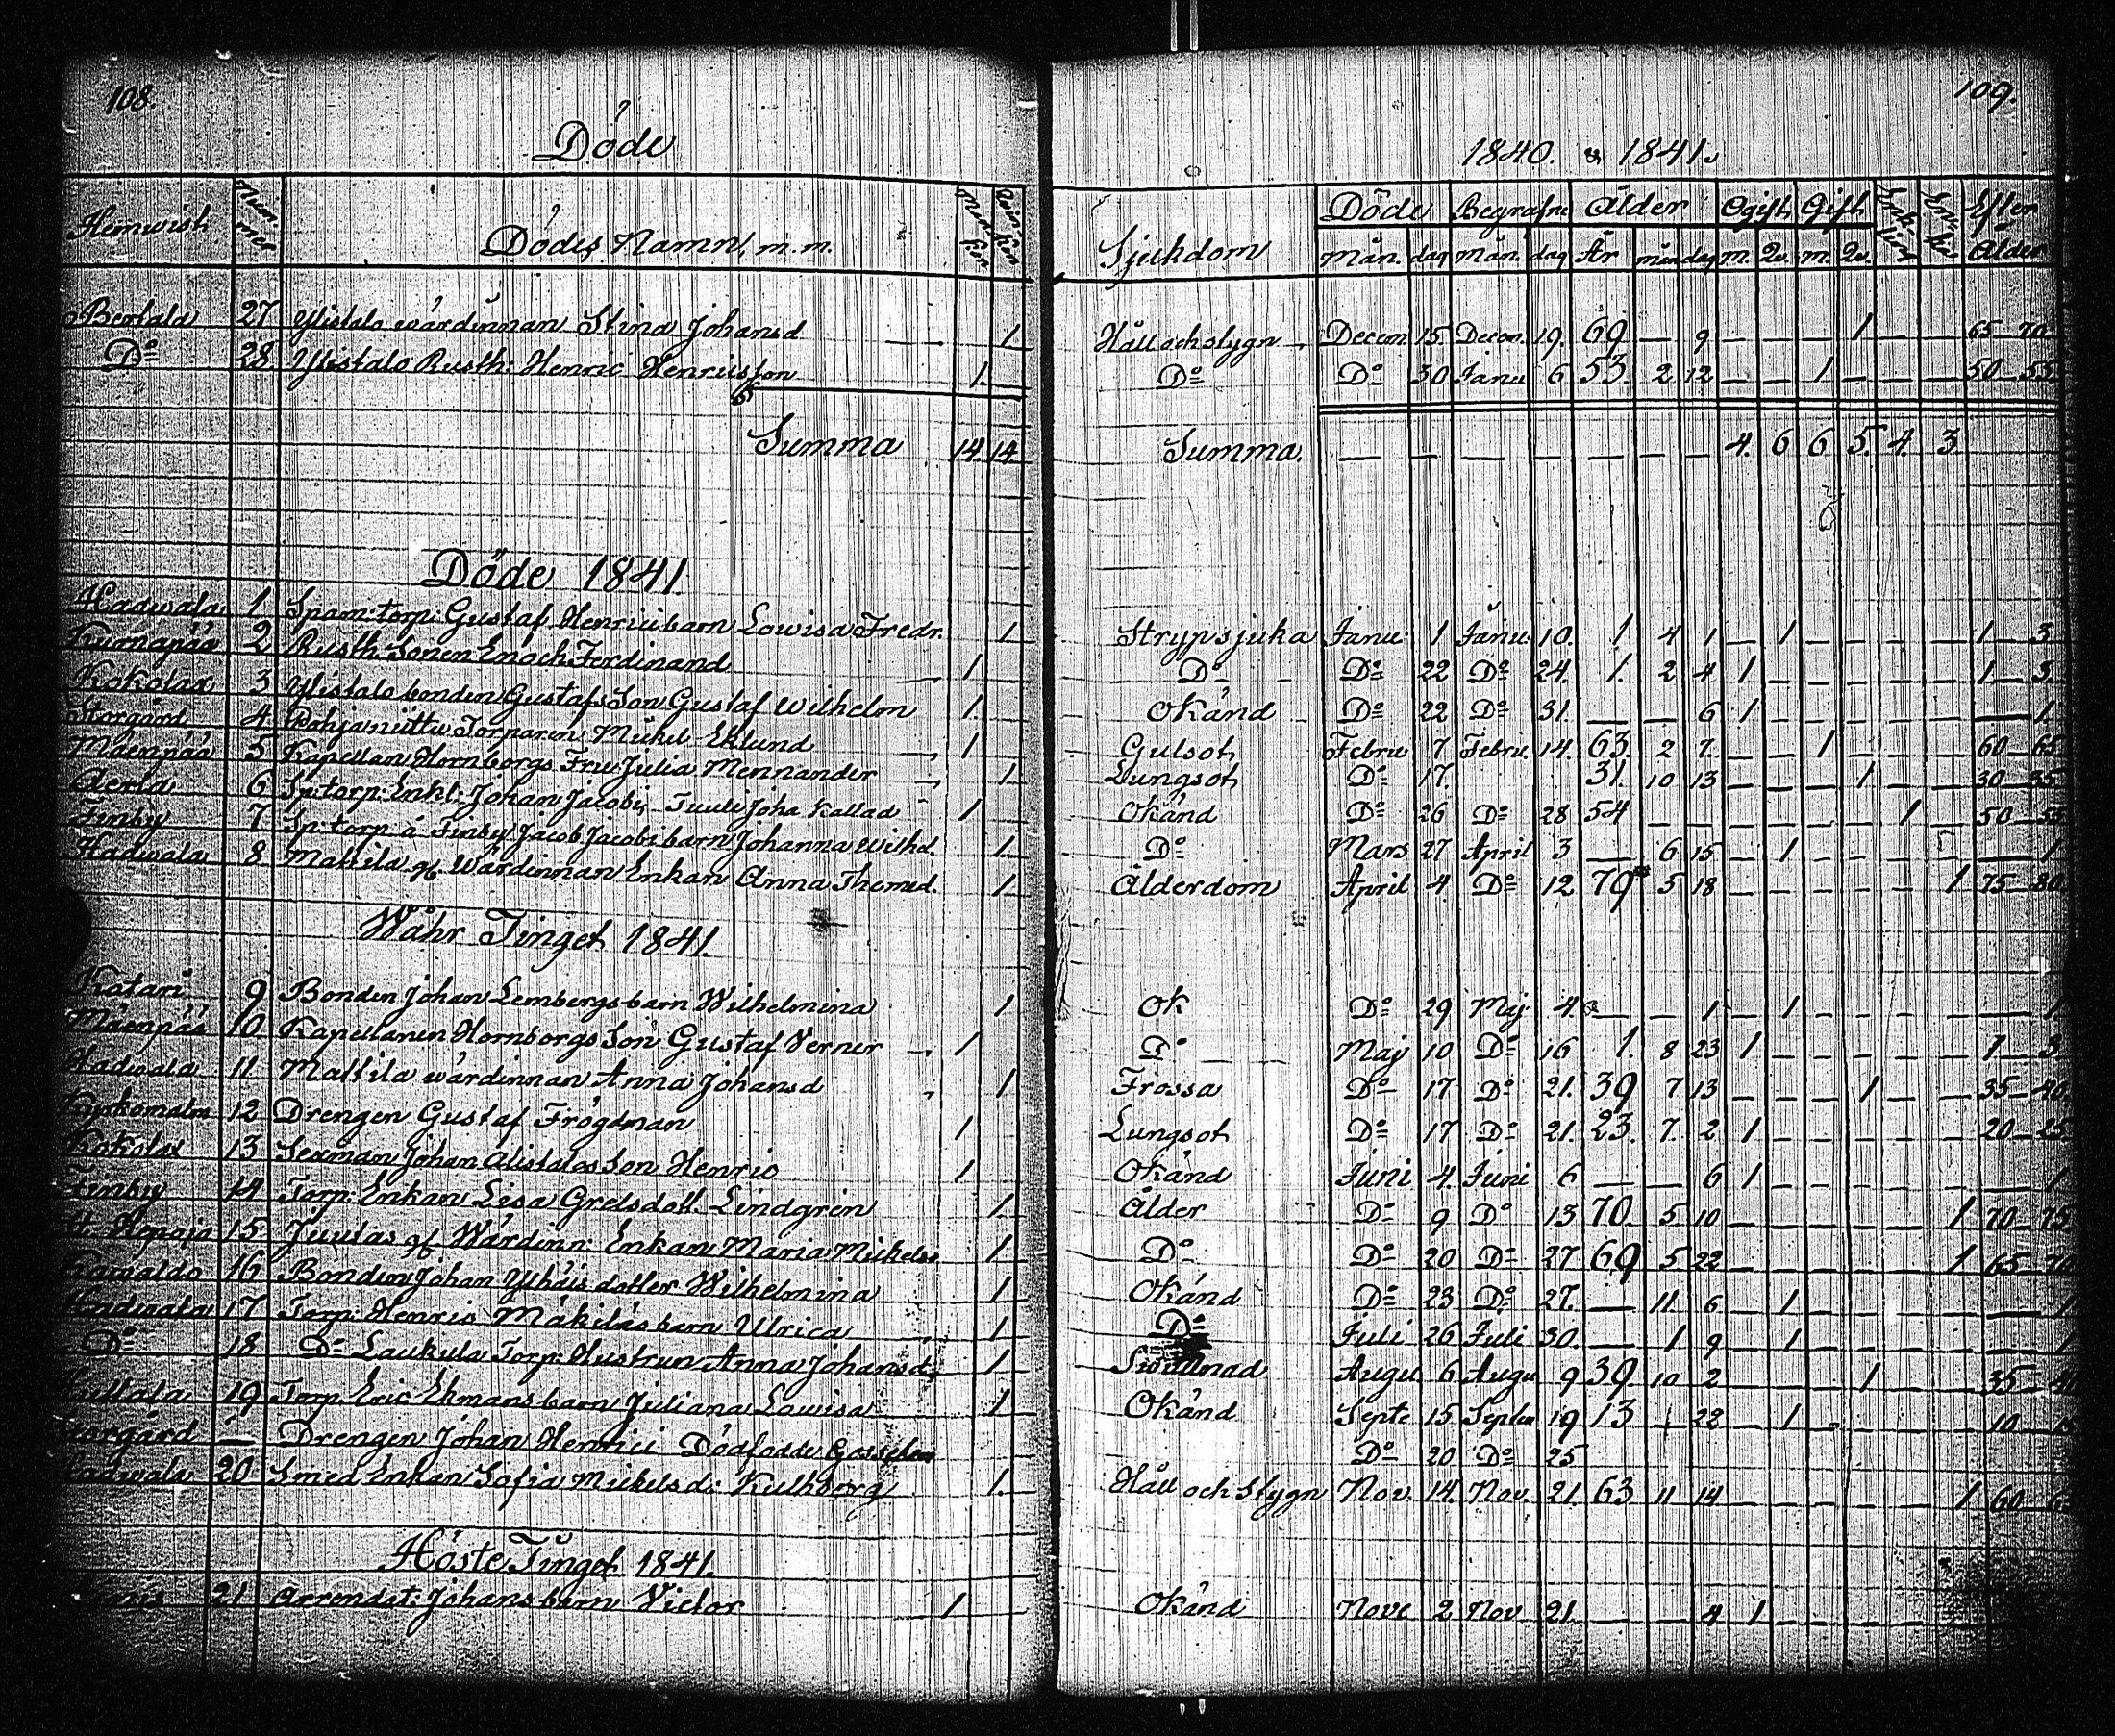 108.
Döde
Hemwist. Num̄mer Dödes Namn, m. m. Mankön Qvinkön
Bertala 27 Ylistalo wärdinnan Stina Johansd 1
Do 28. Ylistalo Rusth: Henric Henricsson 1.
Summa 14. 14
Döde 1841.
Hadwala 1 Spam: torp: Gustaf Henrici barn Lowisa Fredr. 1
2 Rusth. Sonen Enoch Ferdinand 1
Kokolax 3 Ylistalo bonden Gustafs Son Gustaf Wilhelm 1.
Storgård 4 Pohjanittu Torparen Mickel Eklund 1
Mäenpää 5 Kapellan Hornborgs Fru Julia Mennander 1
Aerla 6 Sp: torp: Enkl: Johan Jacobi, Tuuli Joha Kallad 1
Finby 7 Sp: torp: å Finby Jacob Jacobi barn Johanna Wilhd. 1.
Hadwala 8 Mattila gf. Wärdinnan Enkan Anna Thomsd. 1.
Währ Tinget 1841.
Katari 9 Bonden Johan Lembergs barn Wilhelmina 1
Mäenpää 10. Kapellanen Hornborgs Son Gustaf Verner 1
Hadwala 11 Mattila wärdinnan Anna Johansd 1
Kyrkomalm 12 Drengen Gustaf Frögdman 1
Kokolax 13 Sexman Johan Alistalos Son Henric 1
Finby 14 Torp: Enkan Lisa Gretsdott. Lindgren 1.
15 Juutas gf Wärdinn: Enkan Maria Mickels. 1.
16 Bonden Johan Yliäis dotter Wilhelmina 1
Hadwala 17 Torp: Henric Mäkiläs barn Ulrica 1
Do 18 Do Laukula Torp: Hustrun Anna Johansd. 1
19 Torp. Eric Ekmans barn Juliana Lawisa 1
Storgård — Drengen Johan Henrici Dödfödde Gosse
Hadwala 20 Smed Enkan Sofia Mickelsd: Kullborg 1.
Höste Tinget 1841.
21 Arrendat: Johans barn Victor 1
109.
1840. & 1841.
Sjukdom Döde Begrafne Ålder Ogift Gift Enkling Enka Efter Ålder
Mån. dag Mån. dag År mån dag m. Qv. m. Qv.
Håll och stygn Decem 15. Decem. 19. 69 — 9 — — — 1 — — 65–70
Do Do 30 Janu 6 53. 2 12 — — 1 — — — 50–55
Summa. — — — — — — — 4. 6 6 5. 4. 3
Strypsjuka Janu: 1 Janu: 10. 1 4 1 — 1 — — — — 1–3
Do Do 22 Do 24. 1. 2 4 1 — — — — — 1–3.
Okänd Do 22 Do 31. — — 6 1 — — — — — — 1.
Gulsot Febru 7 Febru. 14. 63. 2 7. — — 1 — — — 60–65
Lungsot Do 17. 31. 10 13 — — — 1 — — 30–35
Okänd Do 26 Do 28 54 — — — — — — 1 — 50–55
Do Mars 27 April 3 — 6 15 — 1 — — — — — 1
Ålderdom April 4. Do 12 79 5 18 — — — — — 1 75–80
Ok Do 29 Maj 4. — — 1 — 1 — — — — — 1
Do Maj 10 Do 16 1. 8 23 1 — — — — — 1–3
Frossa Do 17 Do 21. 39 7 13 — — — 1 — — 35–40
Lungsot Do 17 Do 21. 23. 7. 2 1 — — — — — 20–25
Okänd Juni 4. Juni 6 — — 6 1 — — — — — — 1
Ålder Do 9 Do 13 70. 5 10 — — — — — 1 70–75
Do Do 20 Do 27 69 5 22 — — — — — 1 65–70
Okänd Do 23 Do 27. — 11 6 — 1 — — — — — 1
Do Juli 26 Juli 30. — 1 9 — 1 — — — — — 1
Swullnad Augu 6 Augu 9 39 10 2 — — — 1 — — 35–40
Okänd Septe 15 Septem 19 13 — 22 — 1 — — — — 10–15
Do 20 Do 25
Håll och Stygn Nov. 14. Nov. 21. 63 11 14 — — — — — 1 60–
Okänd Nove 2 Nov 21. — — 4 1 — — — — —